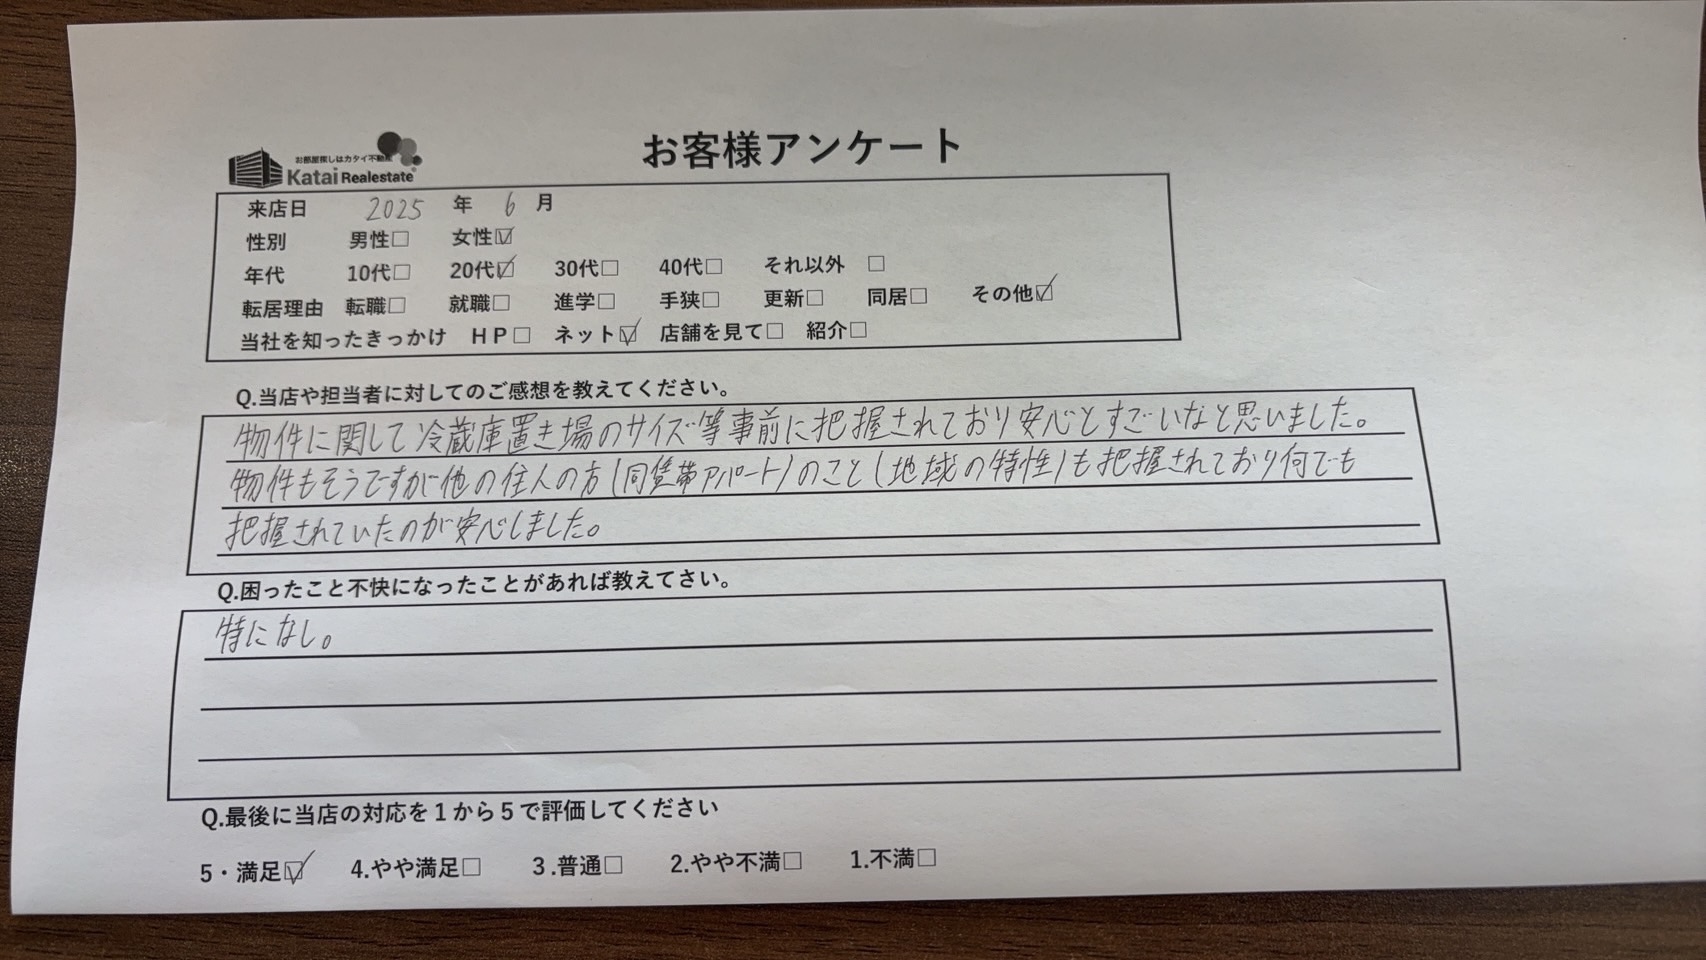 お客様アンケート
お部屋探しはカタイ不動産
Katai Realestate
来店日 2025 年 6 月
性別 男性□ 女性☑
年代 10代□ 20代☑ 30代□ 40代□ それ以外 □
転居理由 転職□ 就職□ 進学□ 手狭□ 更新□ 同居□ その他☑
当社を知ったきっかけ HP□ ネット☑ 店舗を見て□ 紹介□
Q.当店や担当者に対してのご感想を教えてください。
物件に関して冷蔵庫置き場のサイズ等事前に把握されており安心とすごいなと思いました。
物件もそうですが他の住人の方(同賃帯アパート)のこと(地域の特性)も把握されており何でも
把握されていたのが安心しました。
Q.困ったこと不快になったことがあれば教えてさい。
特になし。
Q.最後に当店の対応を1から5で評価してください
5・満足☑ 4.やや満足□ 3.普通□ 2.やや不満□ 1.不満□